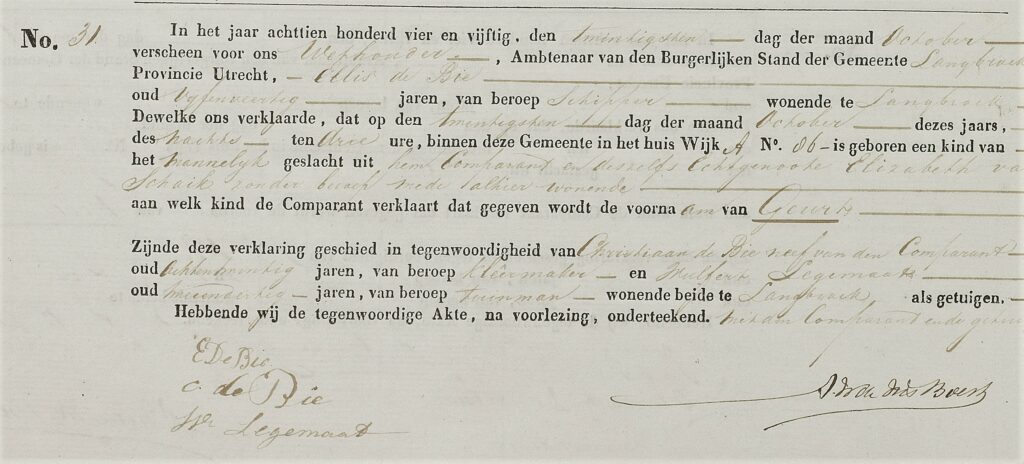 No. 31.
In het jaar achttien honderd vier en vijftig, den twintigsten dag der maand October
verscheen voor ons Wethouder, Ambtenaar van den Burgerlijken Stand der Gemeente Langbroek
Provincie Utrecht, Ellis de Bie
oud vyfenveertig jaren, van beroep Schipper wonende te Langbroek
Dewelke ons verklaarde, dat op den twintigsten dag der maand October dezes jaars,
des nachts ten drie ure, binnen deze Gemeente in het huis Wijk A No. 86 is geboren een kind van
het mannelyk geslacht uit hem Comparant en deszelfs Echtgenoote Elizabeth va
Schaik zonder beroep mede alhier wonende
aan welk kind de Comparant verklaart dat gegeven wordt de voornaam van Geurt
Zijnde deze verklaring geschied in tegenwoordigheid van Christiaan de Bie neef van den Comparant
oud jaren, van beroep kleermaker en Huibert Legemaat
oud jaren, van beroep tuinman wonende beide te Langbroek, als getuigen.
Hebbende wij de tegenwoordige Akte, na voorlezing, onderteekend. met den Comparant en de getui
E De Bie
C. de Bie
Hr Legemaat